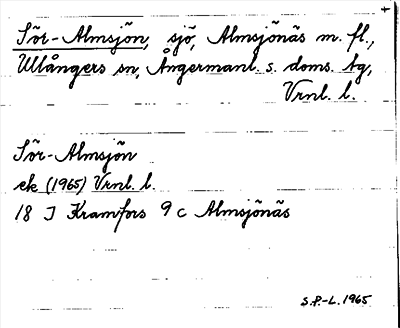 Sör-Almsjön, sjö, Almsjönäs m. fl.,
Ullångers sn, Ångermanl. s. doms. tg,
Vrnl. l.
Sör-Almsjön
ek (1965) Vrnl. l.
18 J Kramfors 9 c Almsjönäs
S.P.-L. 1965